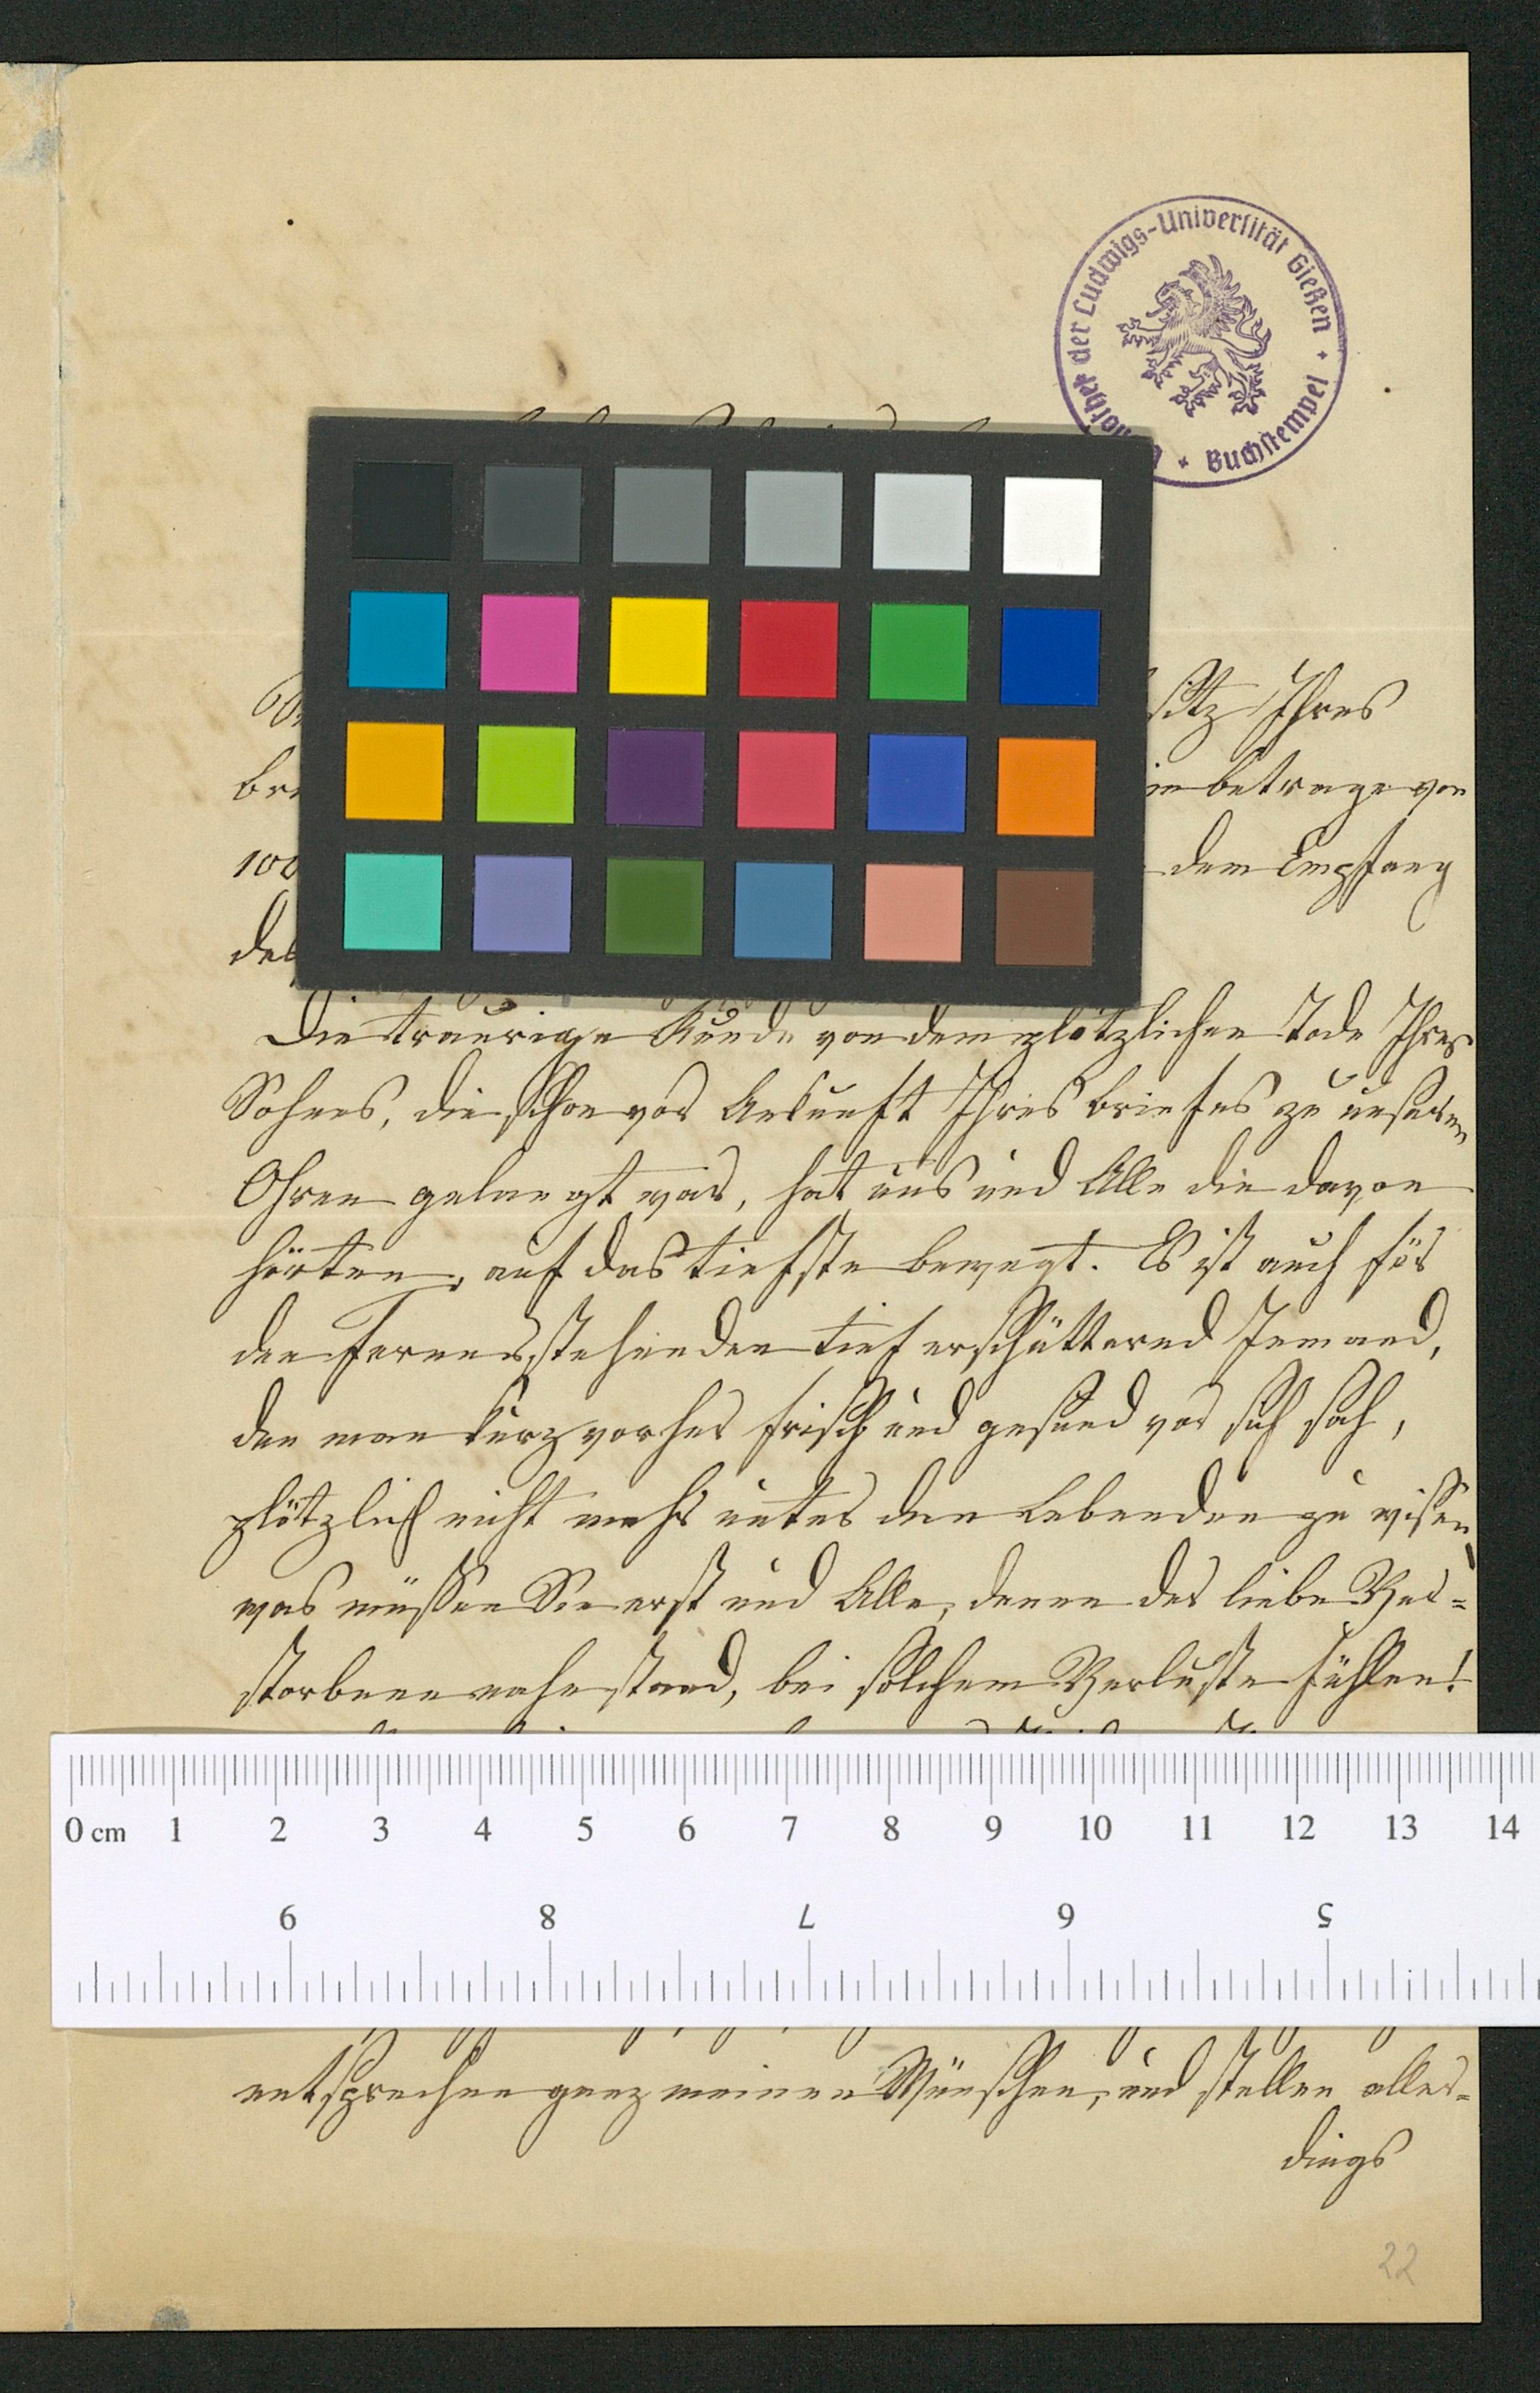 der Ludwigs-Universität Gießen
Buchstempel
sitz Ihres
im betrage von
100
dem Empfang
des
Die traurige Kunde von dem plötzlichen Tode Ihres
Sohnes, die schon vor Ankunft Ihres Briefes zu unseren
Ohren gelangt war, hat uns und Alle die davon
hörten, auf das tiefste bewegt. Es ist auch für
den Fernerstehenden tief erschütternd Jemand,
den man kurz vorher frisch und gesund vor sich sah,
plötzlich nicht mehr unter den Lebenden zu wissen,
was müssen Sie erst und Alle, denen der liebe Ver=
storbene nahe stand, bei solchem Verluste fühlen!
0 cm 1 2 3 4 5 6 7 8 9 10 11 12 13 14
9 8 7 6 5
entsprechen ganz meinen Wünschen, und stellen aller=
dings
22